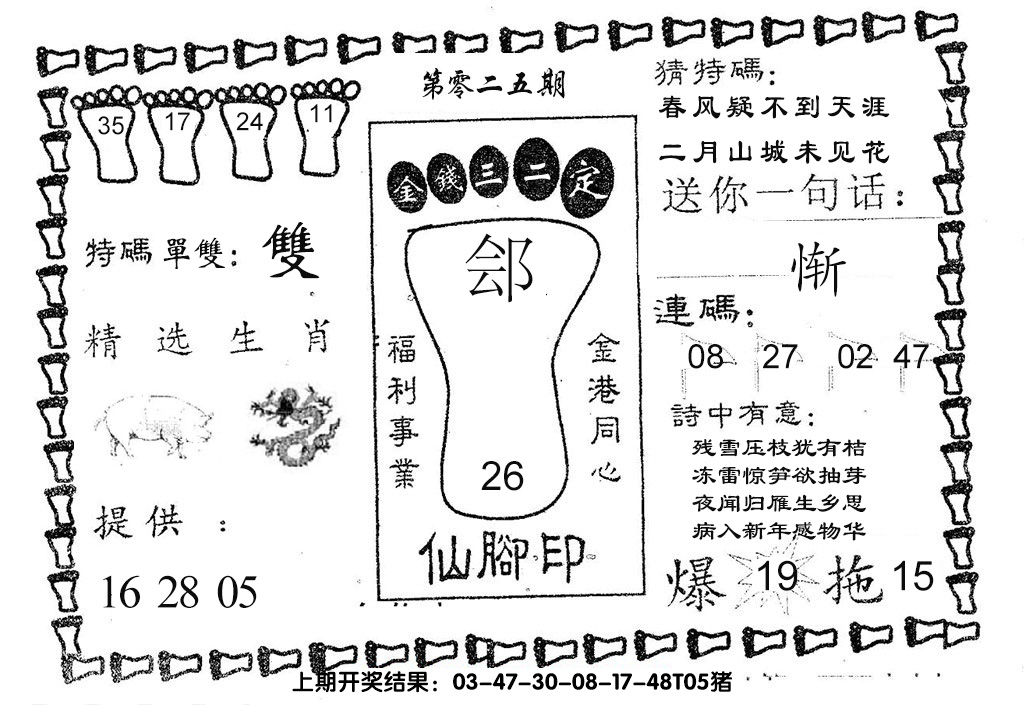 第零二五期
35 17 24 11
特碼單雙：雙
精选生肖
提供：
16 28 05
金錢三二定
郐
福利事業
金港同心
26
仙腳印
猜特碼：
春风疑不到天涯
二月山城未见花
送你一句话：
惭
連碼：
08 27 02 47
詩中有意：
残雪压枝犹有桔
冻雷惊笋欲抽芽
夜闻归雁生乡思
病入新年感物华
爆 19 拖 15
上期开奖结果：03-47-30-08-17-48T05猪